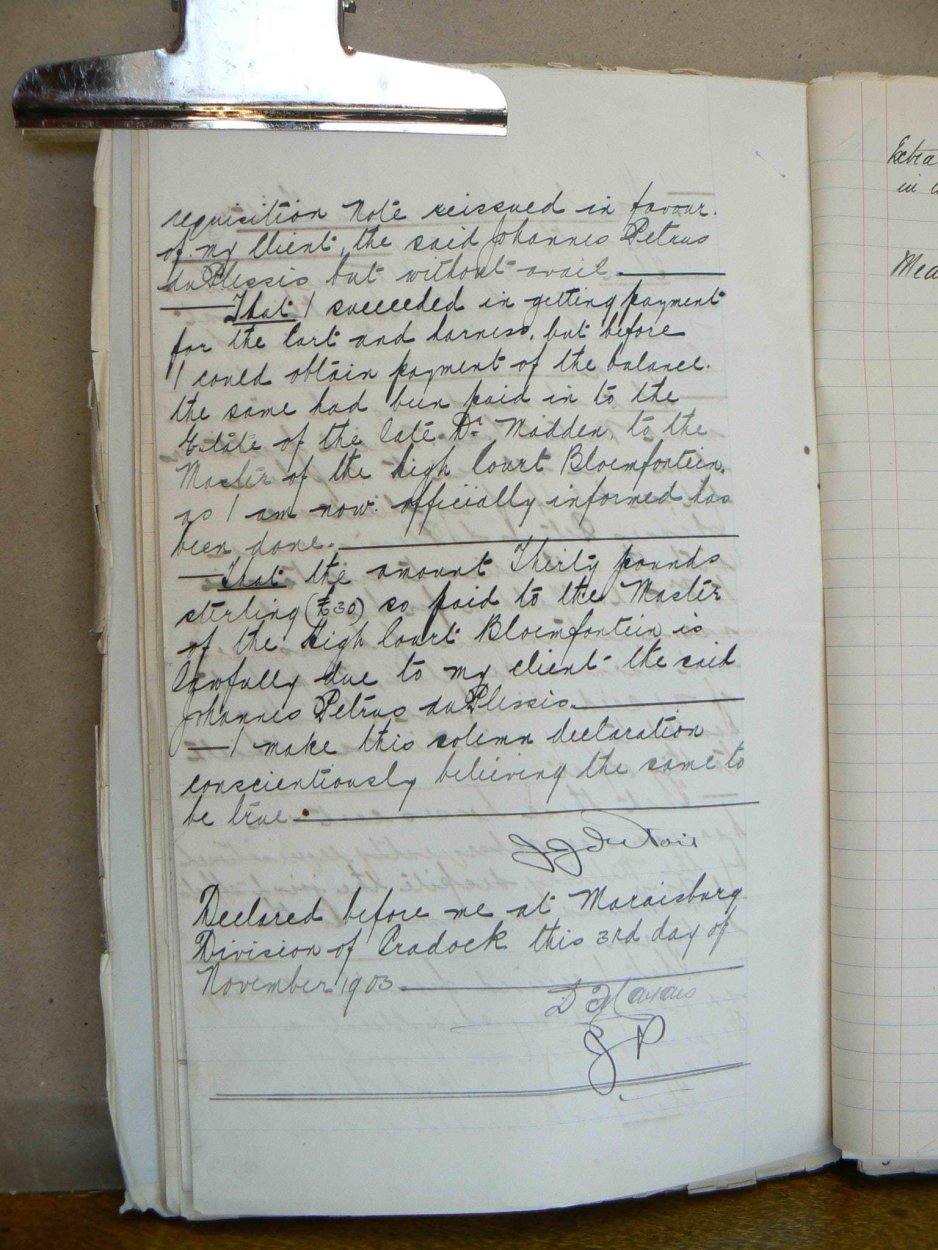 requisition Note reissued in favour.
of my Client, the said Johannes Petrus
du Plessis but without avail.
That I succeeded in getting payment
for the Cart and harness, but before
I could obtain payment of the balance.
the same had been paid in to the
Estate of the late Dr. Madden, to the
Master of the High Court Bloemfontein,
as I am now officially informed has
been done.
That the amount Thirty pounds
sterling (£30) so paid to the Master
of the High Court Bloemfontein is
lawfully due to my client the said
Johannes Petrus du Plessis.
I make this solemn declaration
conscientiously believing the same to
be true.
Declared before me at Maraisburg
Division of Cradock this 3rd day of
November 1903.
J P
Extra
in
Mea